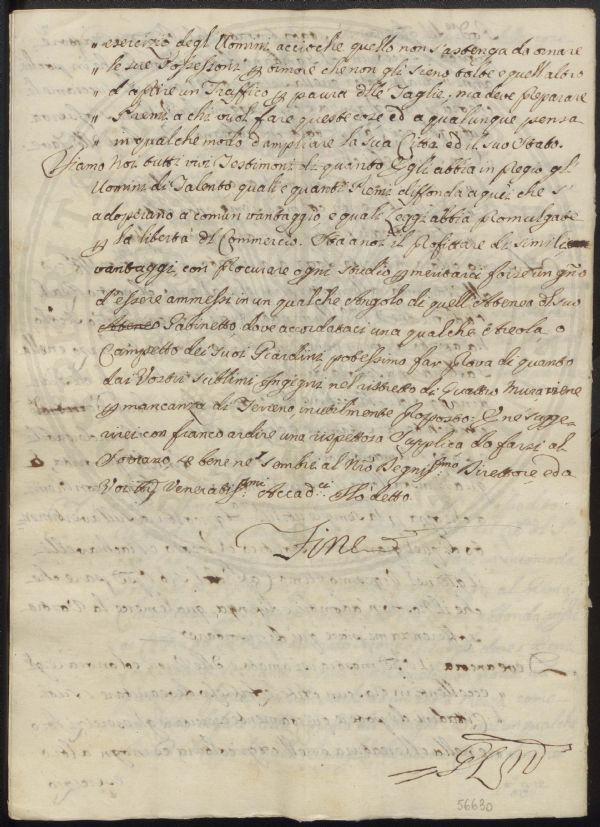 " esercizio degl'Uomini acciochè quello non s'astenga da ornare
" le sue Possessioni p timore che non gli sieno tolte e quell'altro
" d'aprire un Traffico p paura delle Taglie, ma deve preparare
" Premi a chi vuol fare queste cose ed a qualunque pensa
" in qualche modo d'ampliare la sua Città ed il suo Stato.
Siamo Noi tutti vivi Testimonj di quanto Egli abbia in Pregio gl'
Uomini di Talento quali e quanti Premj diffonda a quei che s'
adoprano a comun vantaggio e quali Leggi abbia Promulgate
p la libertà di Commercio. Sta a noi il Profittare di simili
vantaggi, con Procurare ogni studio p meritarci forse un gño
d'essere ammessi in un qualche Angolo di quell'Ateneo del suo
Ateneo Gabinetto dove accordataci una qualche
Campetto dei Suoi Giardini potessimo far Prova di quanto
dai Vostri sublimi Ingegni nel ristretto di Quattro Mura viene
p mancanza di Terreno inutilmente Proposto: E ne sugge-
rirei con franco ardire una rispettosa Supplica da farsi al
Sovrano, se bene ne sembri al Nro Degnissimo Direttore ed a
Voi Venerabissmi Accadci Ho detto.
Fine
56630